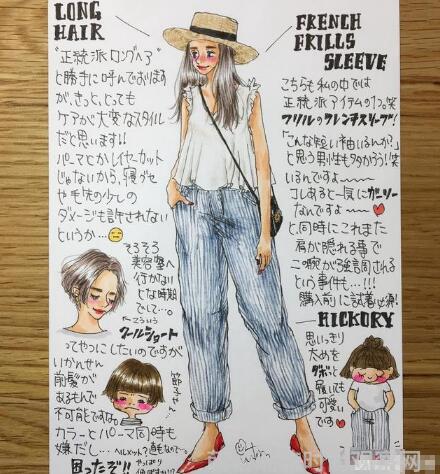 LONG
HAIR
"正統派ロングヘア"
と勝手に呼んでおります
が、きっと、とっても
ケアが大変なスタイル
だと思います!!
パーマとかレイヤーカット
じゃないから、寝グセ
や毛先の少しの
ダメージも許されない
というか…
そろそろ
美容室へ
行かない
とな時期
でして…。
←こういう
クールショート
ってやつにしたいのですが
いかんせん
前髪が
あるもんで
不可能ですな。
カラーとパーマ同時も
嫌だし…
困ったぞ!!
FRENCH
FRILLS
SLEEVE
こちらも私の中では
正統派アイテムの1つ。笑
フリルのフレンチスリーブ!
「こんな短い袖いるんか?」
と思う男性も多かろう!笑
いるんですよ〜〜
コレあると一気にガーリー
なんですよ〜〜
と、同時にこれまた
肩が隠れる事で
二の腕が強調される
という事件…!!!
購入前に試着必須!
HICKORY
思いっきり
太めを
ダボっと
履いても
可愛い
です